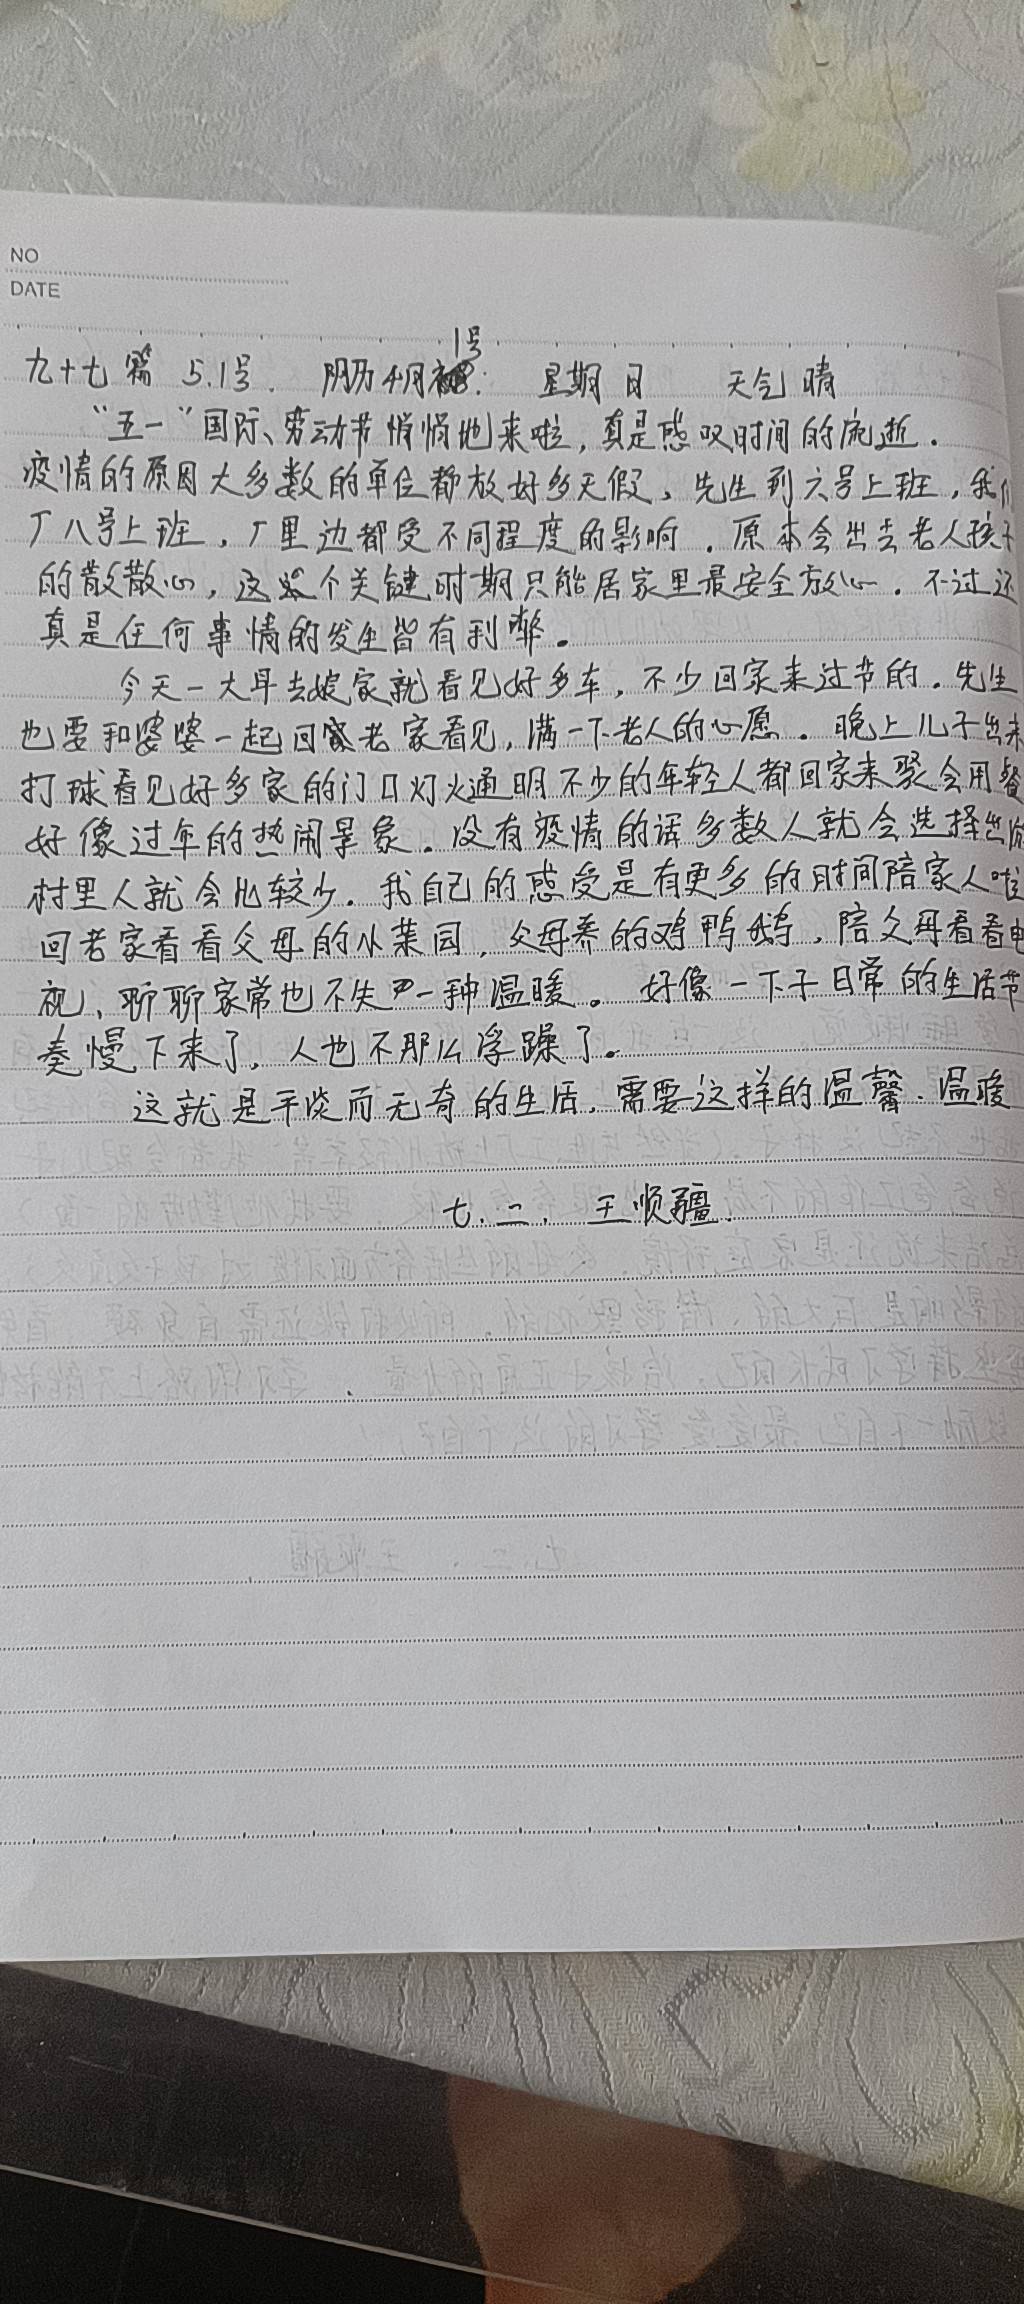 NO
DATE
1号
九十七篇 5.1号. 阴历4月初 星期日 天气晴
“五一”国际、劳动节悄悄地来啦，真是感叹时间的流逝.
疫情的原因大多数的单位都放好多天假，先生到六号上班，我们
厂八号上班，厂里边都受不同程度的影响.原本会出去老人孩子
的散散心，这个关键时期只能居家里最安全放心.不过还
真是任何事情的发生皆有利弊。
今天一大早去娘家就看见好多车，不少回家来过节的.先生
也要和婆婆一起回老家看见,满一下老人的心愿.晚上儿子出来
打球看见好多家的门口灯火通明不少的年轻人都回家来聚会用餐
好像过年的热闹景象.没有疫情的话多数人就会选择出游
村里人就会比较少.我自己的感受是有更多的时间陪家人啦
回老家看看父母的小菜园，父母养的鸡鸭鹅，陪父母看看电
视、聊聊家常也不失一种温暖。好像一下子日常的生活节
奏慢下来了，人也不那么浮躁了。
这就是平淡而无奇的生活，需要这样的温馨.温暖
七.二. 王顺疆.